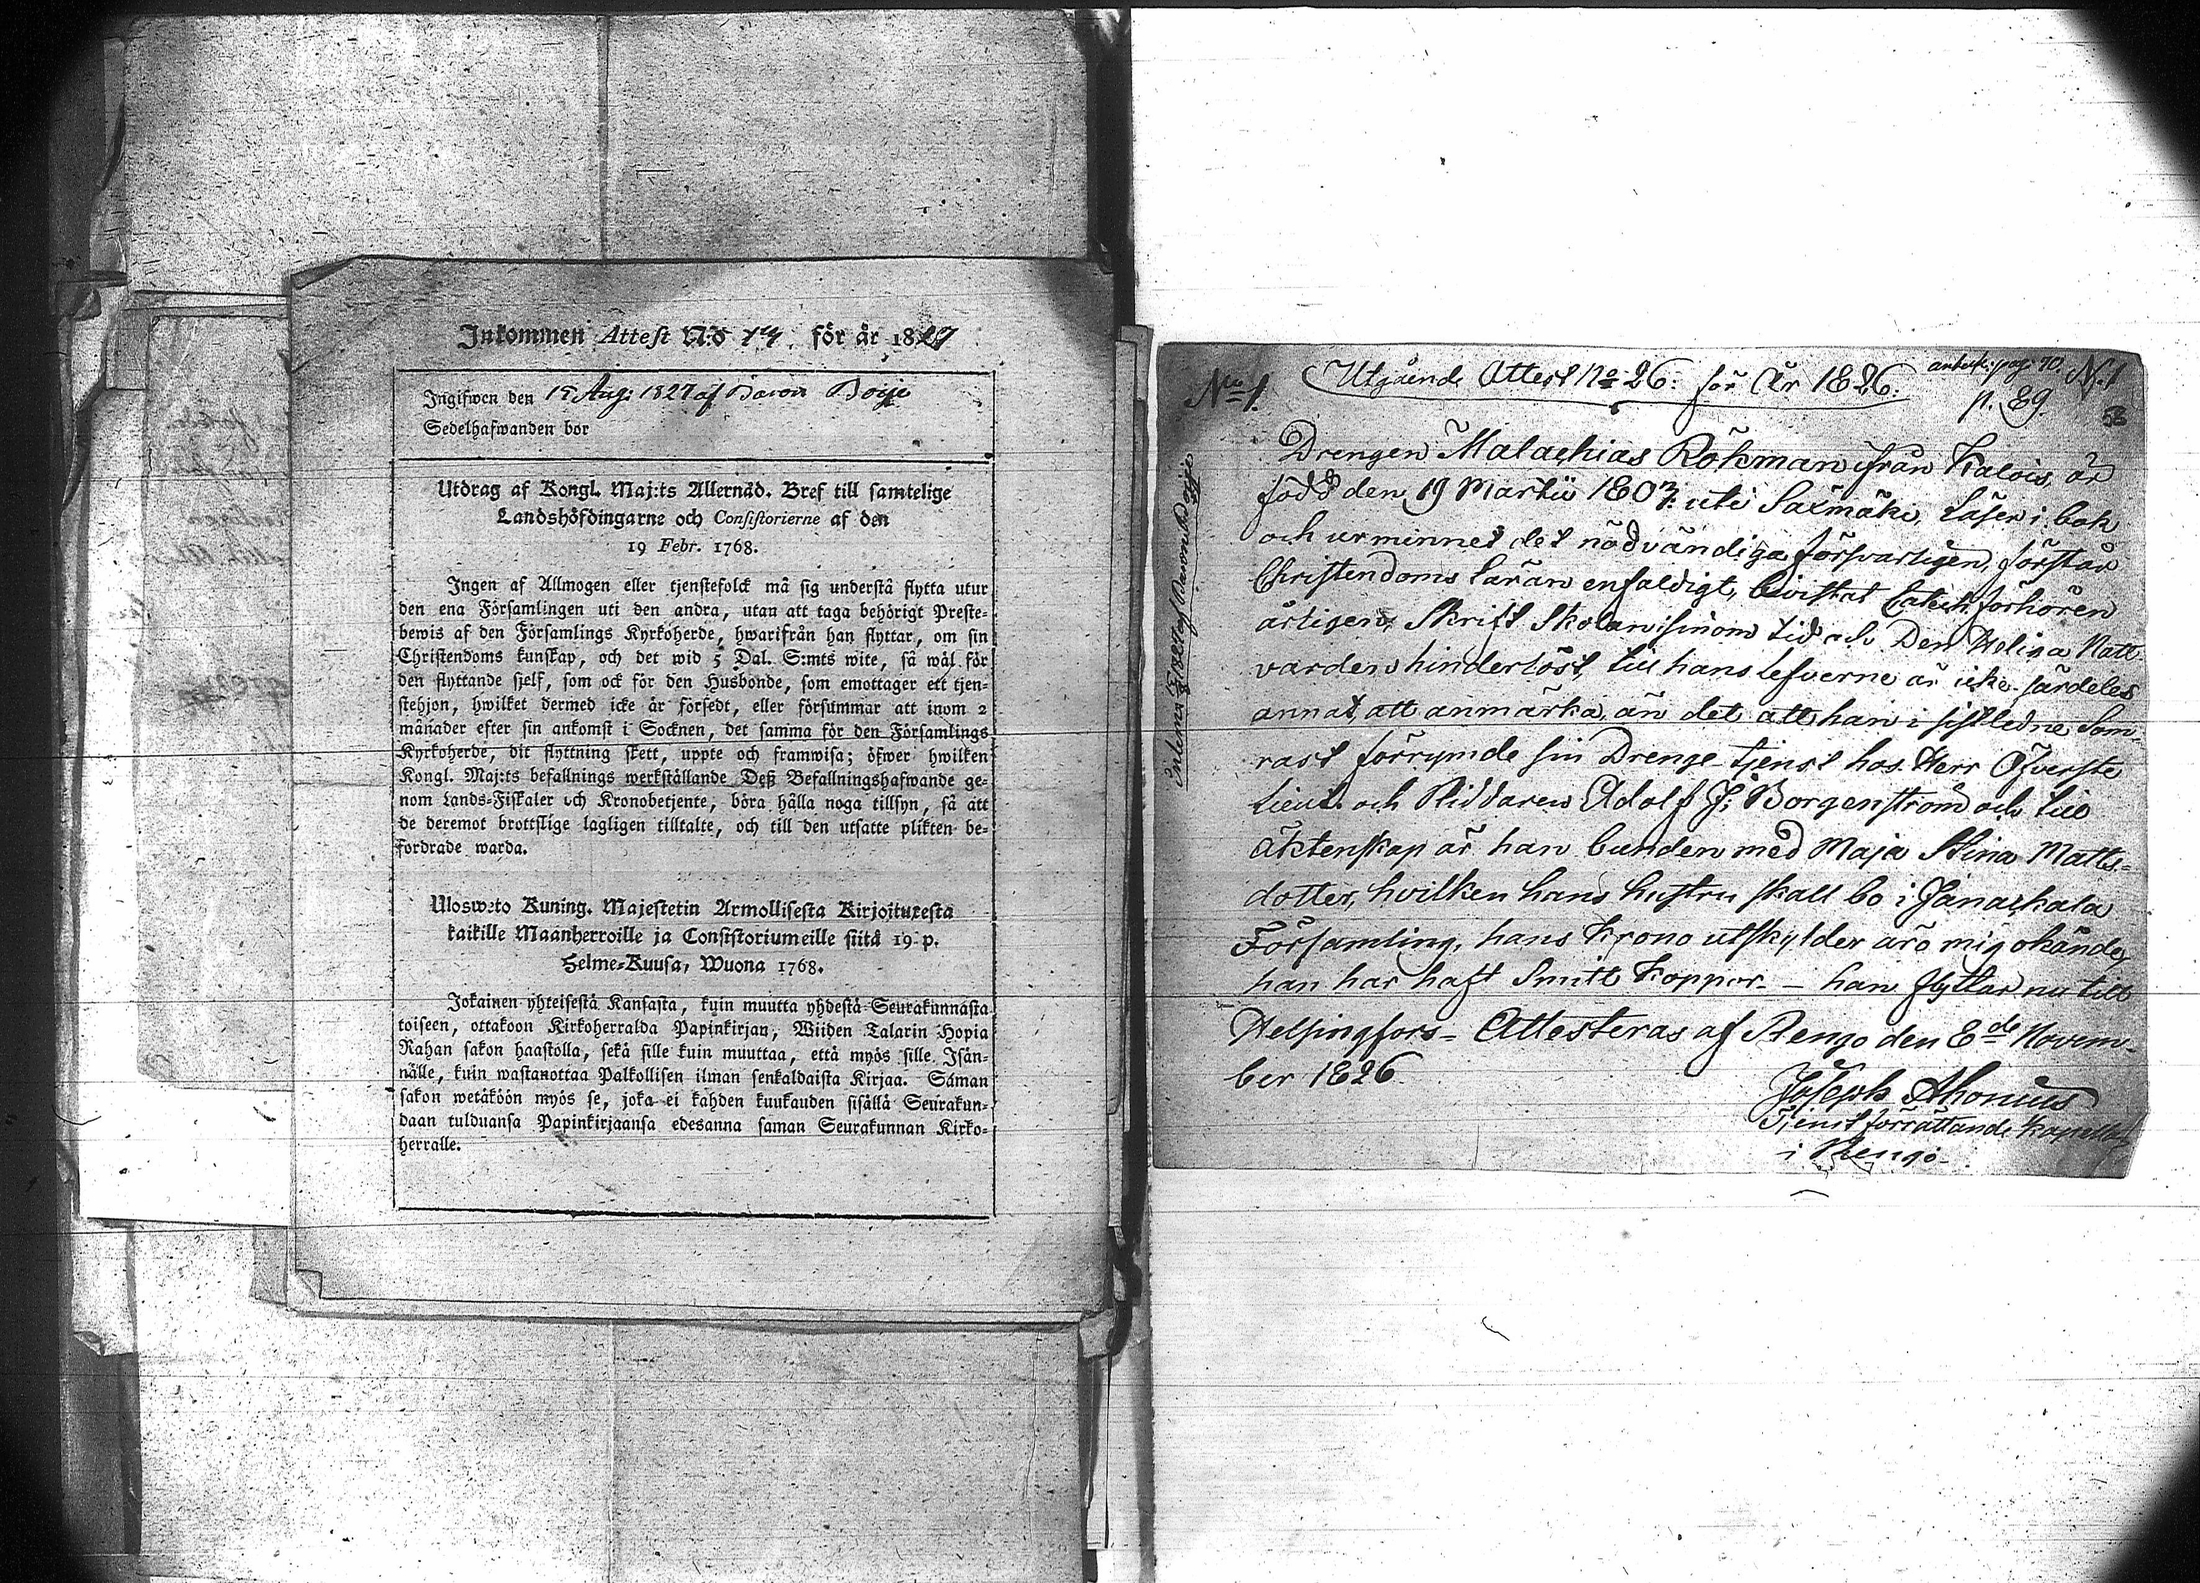 Inkommen Attest N:o 14 för år 1827
Ingifwen den 15 Aug: 1827 af Baron Boije
Sedelhafwanden bor
Utdrag af Kongl. Maj:ts Allernåd. Bref till samtelige
Landshöfdingarne och Consistorierne af den
19 Febr. 1768.
Ingen af Allmogen eller tjenstefolck må sig understå flytta utur
den ena Församlingen uti den andra, utan att taga behörigt Preste-
bewis af den Församlings Kyrkoherde, hwarifrån han flyttar, om sin
Christendoms kunskap, och det wid 5 Dal. S:mts wite, så wäl för
den flyttande sjelf, som ock för den Husbonde, som emottager ett tjen-
stehjon, hwilket dermed icke är försedt, eller försummar att inom 2
månader efter sin ankomst i Socknen, det samma för den Församlings
Kyrkoherde, dit flyttning skett, uppte och framwisa; öfwer hwilken
Kongl. Maj:ts befallnings werkställande Deß Befallningshafwande ge-
nom Lands-Fiskaler och Kronobetjente, böra hålla noga tillsyn, så att
de deremot brottslige lagligen tilltalte, och till den utsatte plikten be-
fordrade warda.
Ulosweto Kuning. Majestetin Armollisesta Kirjoituxesta
kaikille Maanherroille ja Consistoriumeille siitä 19 p.
Helme-Kuusa, Wuona 1768.
Jokainen yhteisestä Kansasta, kuin muutta yhdestä Seurakunnasta
toiseen, ottakoon Kirkoherralda Papinkirjan, Wiiden Talarin Hopia
Rahan sakon haastolla, sekä sille kuin muuttaa, että myös sille Isän-
nälle, kuin wastanottaa Palkollisen ilman senkaldaista Kirjaa. Saman
sakon wetäköön myös se, joka ei kahden kuukauden sisällä Seurakun-
daan tulduansa Papinkirjaansa edesanna saman Seurakunnan Kirko-
herralle.
No 1. Utgående Attest No 26: för År 1826. anteckn: pag: 70. N.1
p. 89
Drengen Malachias Rökman från Kalois, är
född den 19 Martii 1803 uti Saxmäki, Läser i bok
och ur minnet det nödvändiga försvarligen, förstår
Christendoms Läran enfaldigt, bivistat Catech. förhören
årligen, Skrift Skolan inom tid och Den Heliga Natt-
varden hinderlöst, till hans lefverne är icke särdeles
annat att anmärka, än det att han i sistledne Som-
rast förrymde sin Drenge tjenst hos Herr Öfverste
Lieut. och Riddaren Adolf J: Borgenström och till
äktenskap är han bunden med Maja Stina Matts-
dotter, hvilken hans hustru skall bo i Janackala
Församling, hans Krono utskylder äro mig okände,
han har haft Smitt Koppor - han flyttar nu till
Helsingfors - Attesteras af Rengo den 8de Novem-
ber 1826.
Joseph Ahonius
Tjenst förrättande Kapellan
i Rengo